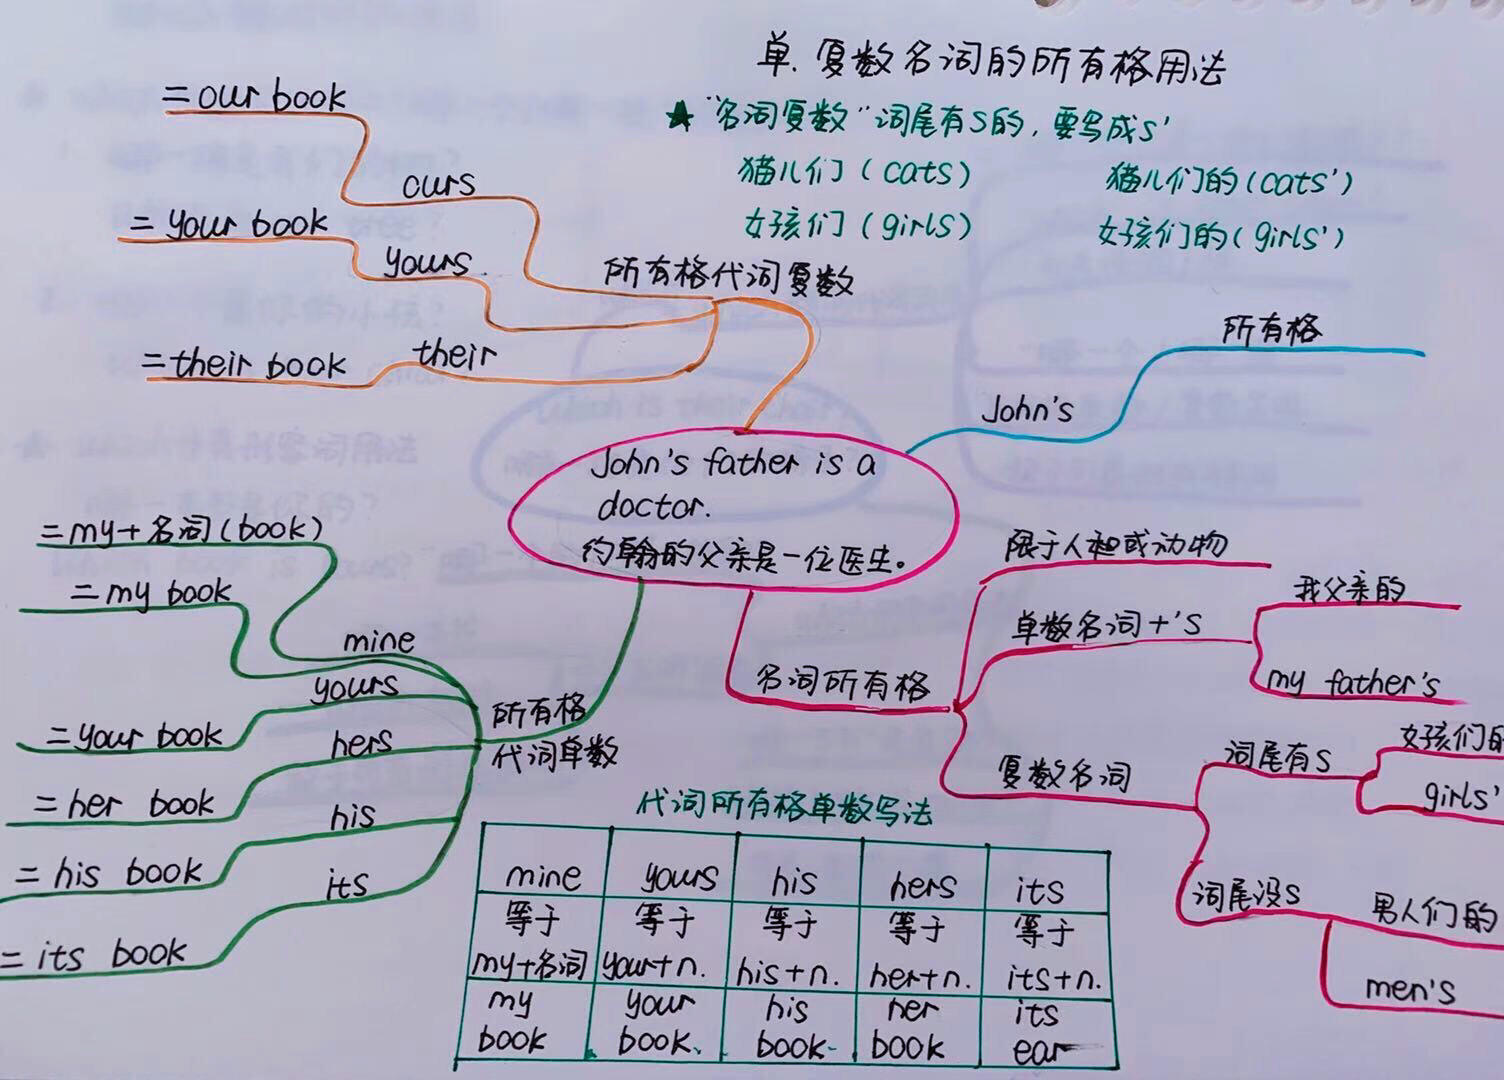 单.复数名词的所有格用法
★"名词复数"词尾有S的,要写成S'
猫儿们(cats) 猫儿们的(cats')
女孩们(girls) 女孩们的(girls')
=our book
ours
=your book
yours
=their book
their
所有格代词复数
所有格
John's
John's father is a
doctor.
约翰的父亲是一位医生。
=my+名词(book)
=my book
mine
yours
=your book
hers
=her book
his
=his book
its
=its book
所有格
代词单数
名词所有格
限于人和或动物
单数名词+'S
我父亲的
my father's
复数名词
词尾有S
女孩们的
girls'
词尾没S
男人们的
men's
代词所有格单数写法
mine yours his hers its
等于 等于 等于 等于 等于
my+名词 your+n. his+n. her+n. its+n.
my your his her its
book book. book. book ear